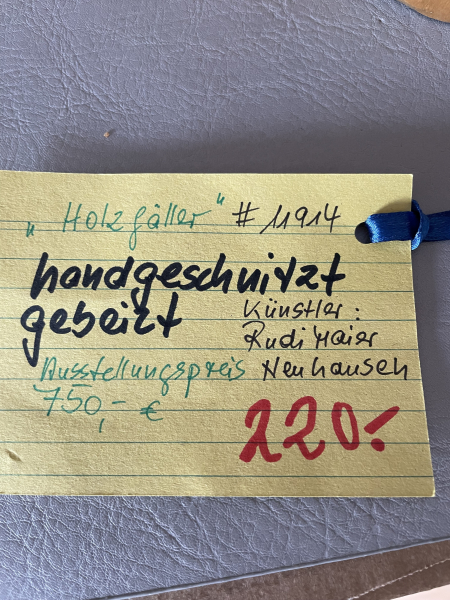 „Holzfäller" # 11914
handgeschnitzt
gebeizt
Künstler:
Rudi Maier
Neuhausen
Ausstellungspreis
750,- €
220.-